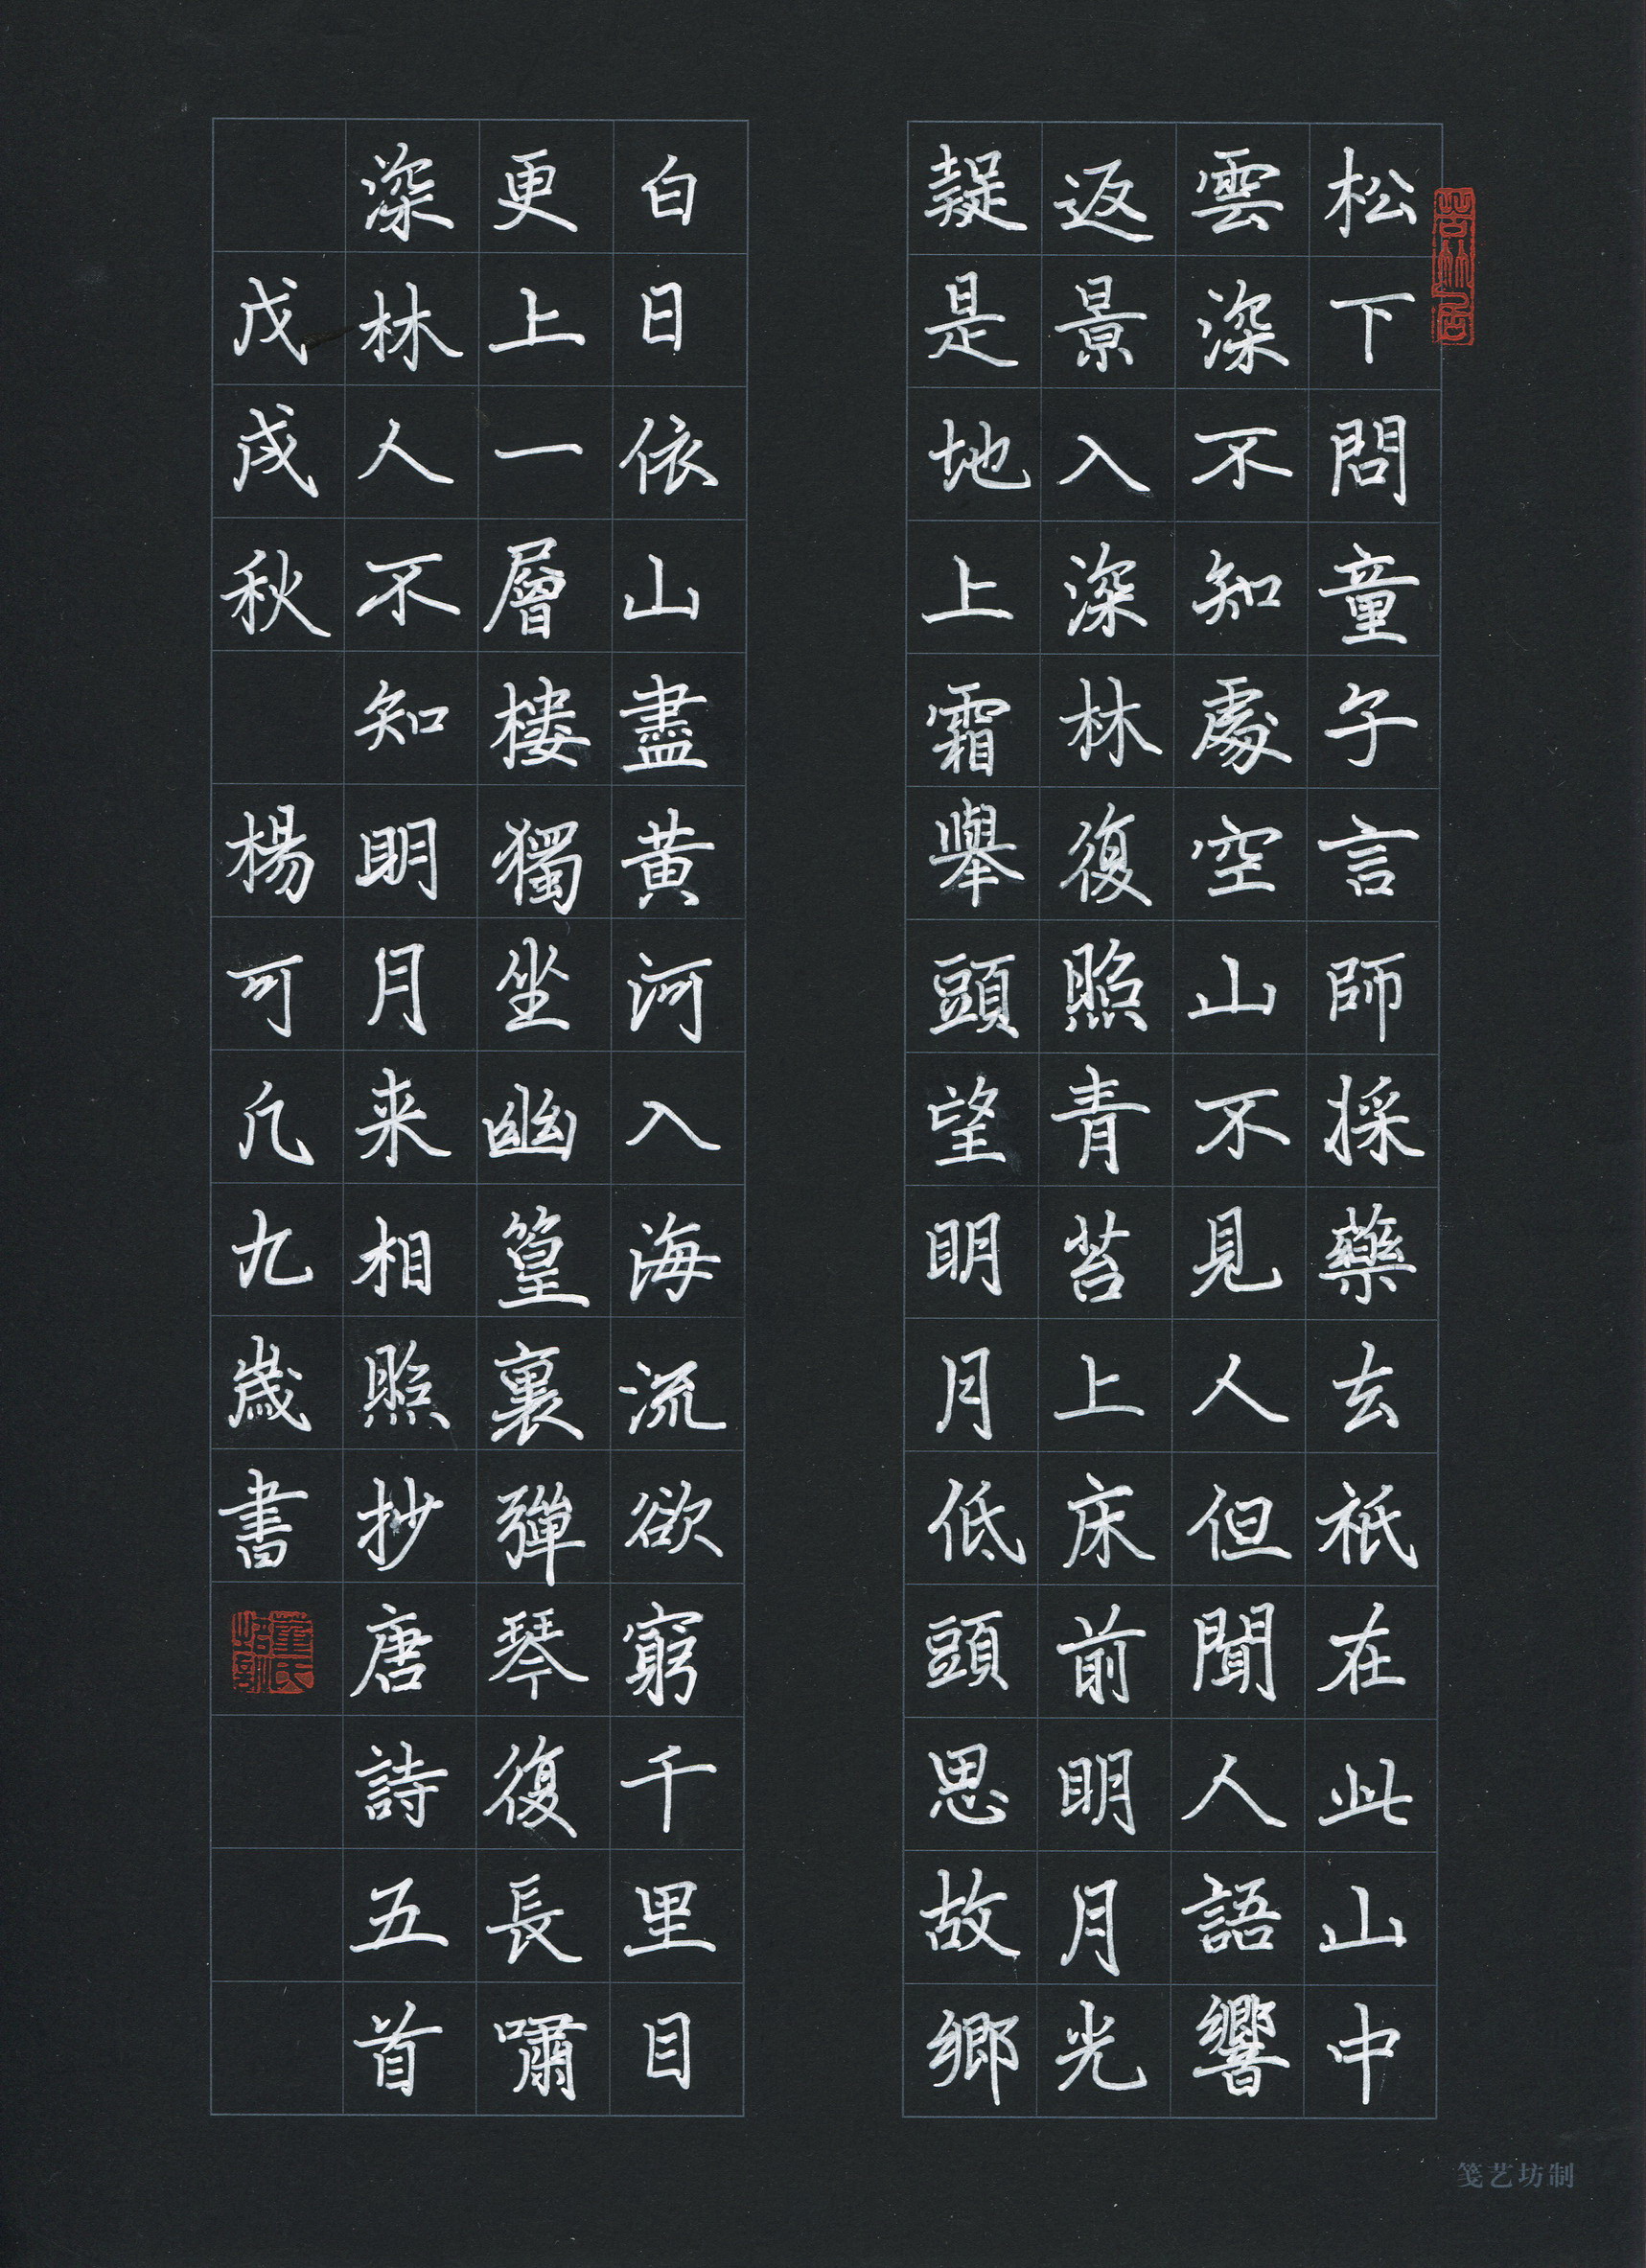 松下問童子言師採藥去祇在此山中
雲深不知處空山不見人但聞人語響
返景入深林復照青苔上床前明月光
疑是地上霜舉頭望明月低頭思故鄉
白日依山盡黄河入海流欲窮千里目
更上一層樓獨坐幽篁裏彈琴復長嘯
深林人不知明月来相照抄唐詩五首
戊戌秋 楊可凢九歲書
笺艺坊制